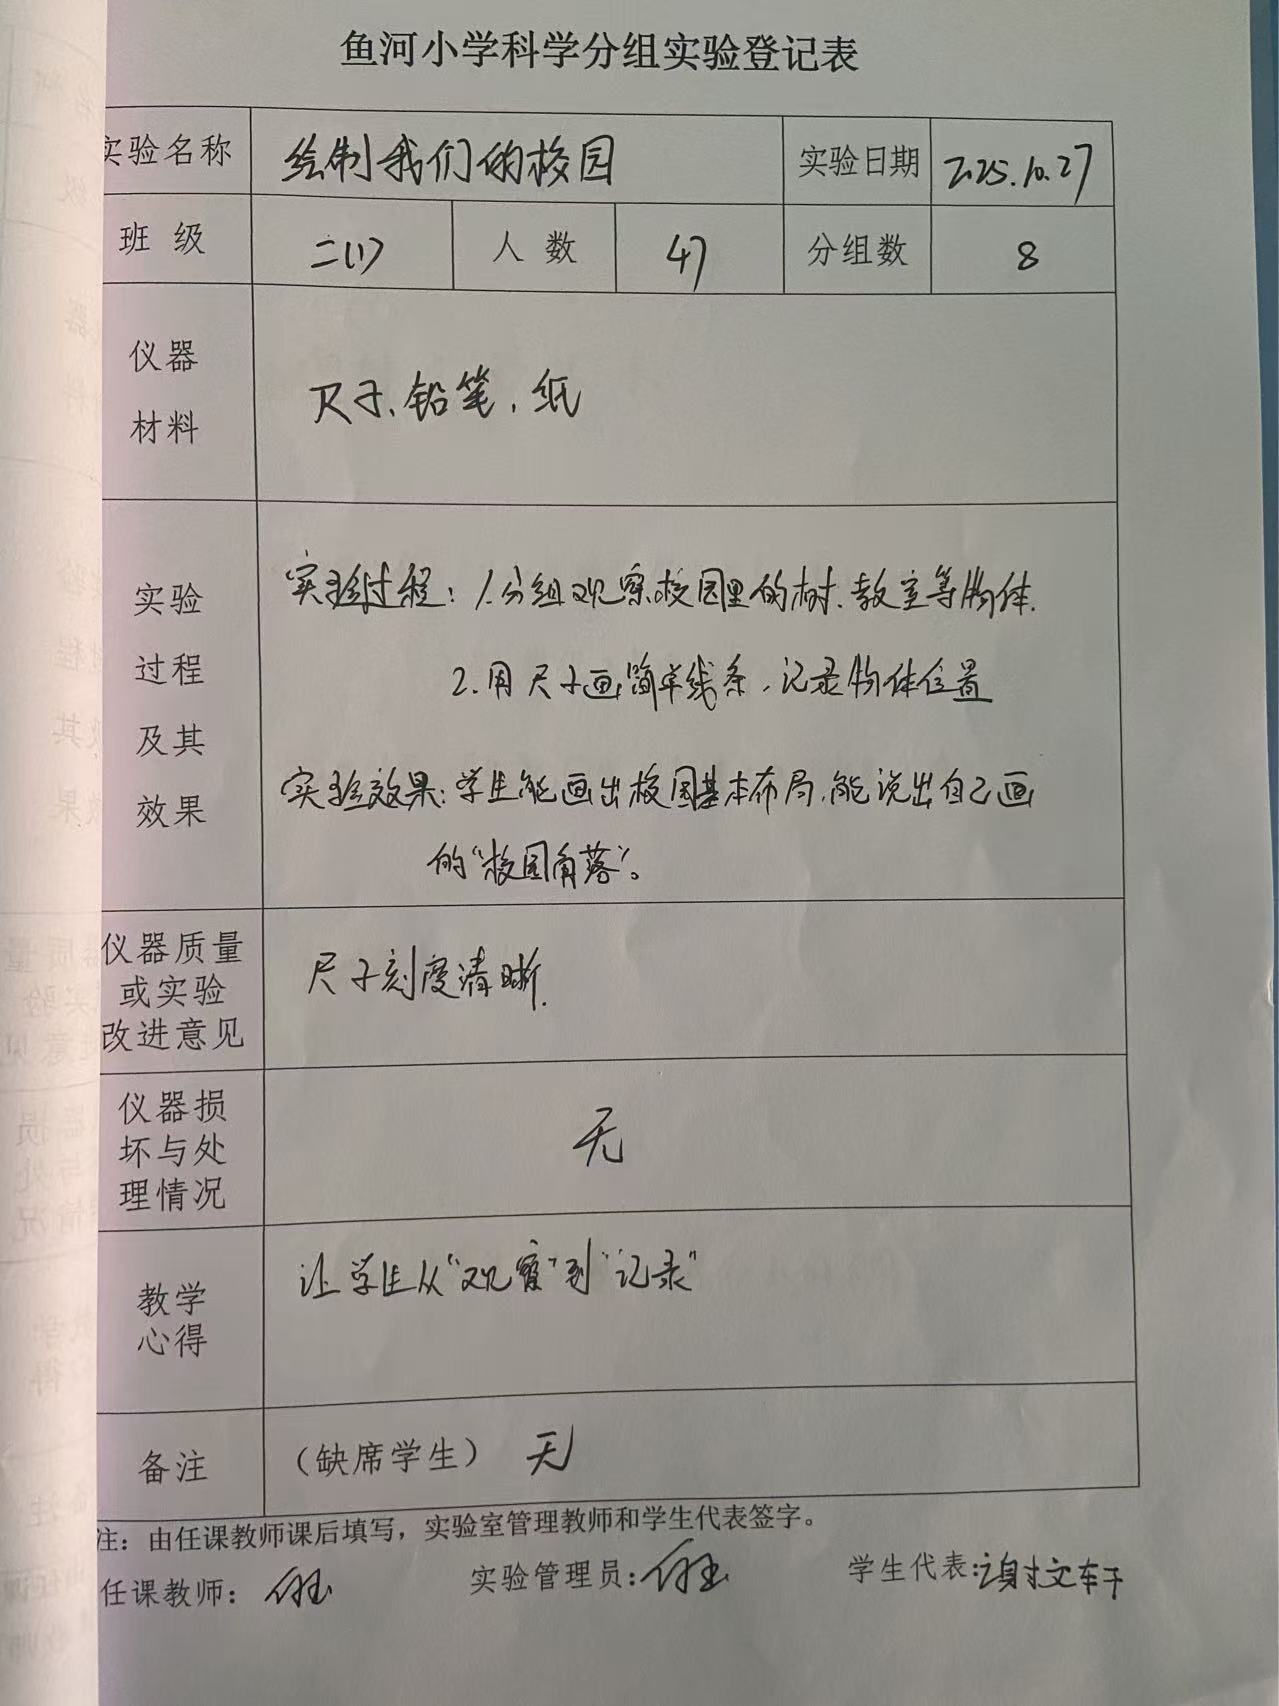 鱼河小学科学分组实验登记表
实验名称 绘制我们的校园 实验日期 2025.10.27
班 级 二(1) 人 数 47 分组数 8
仪器
材料
尺子、铅笔，纸
实验
过程
及其
效果
实验过程：1.分组观察校园里的树、教室等物体.
2.用尺子画简单线条，记录物体位置
实验效果：学生能画出校园基本布局，能说出自己画
的“校园角落”。
仪器质量
或实验
改进意见
尺子刻度清晰.
仪器损
坏与处
理情况
无
教学
心得
让学生从“观察”到“记录”
备注 （缺席学生） 无
注：由任课教师课后填写，实验室管理教师和学生代表签字。
任课教师： 实验管理员： 学生代表：谢文轩